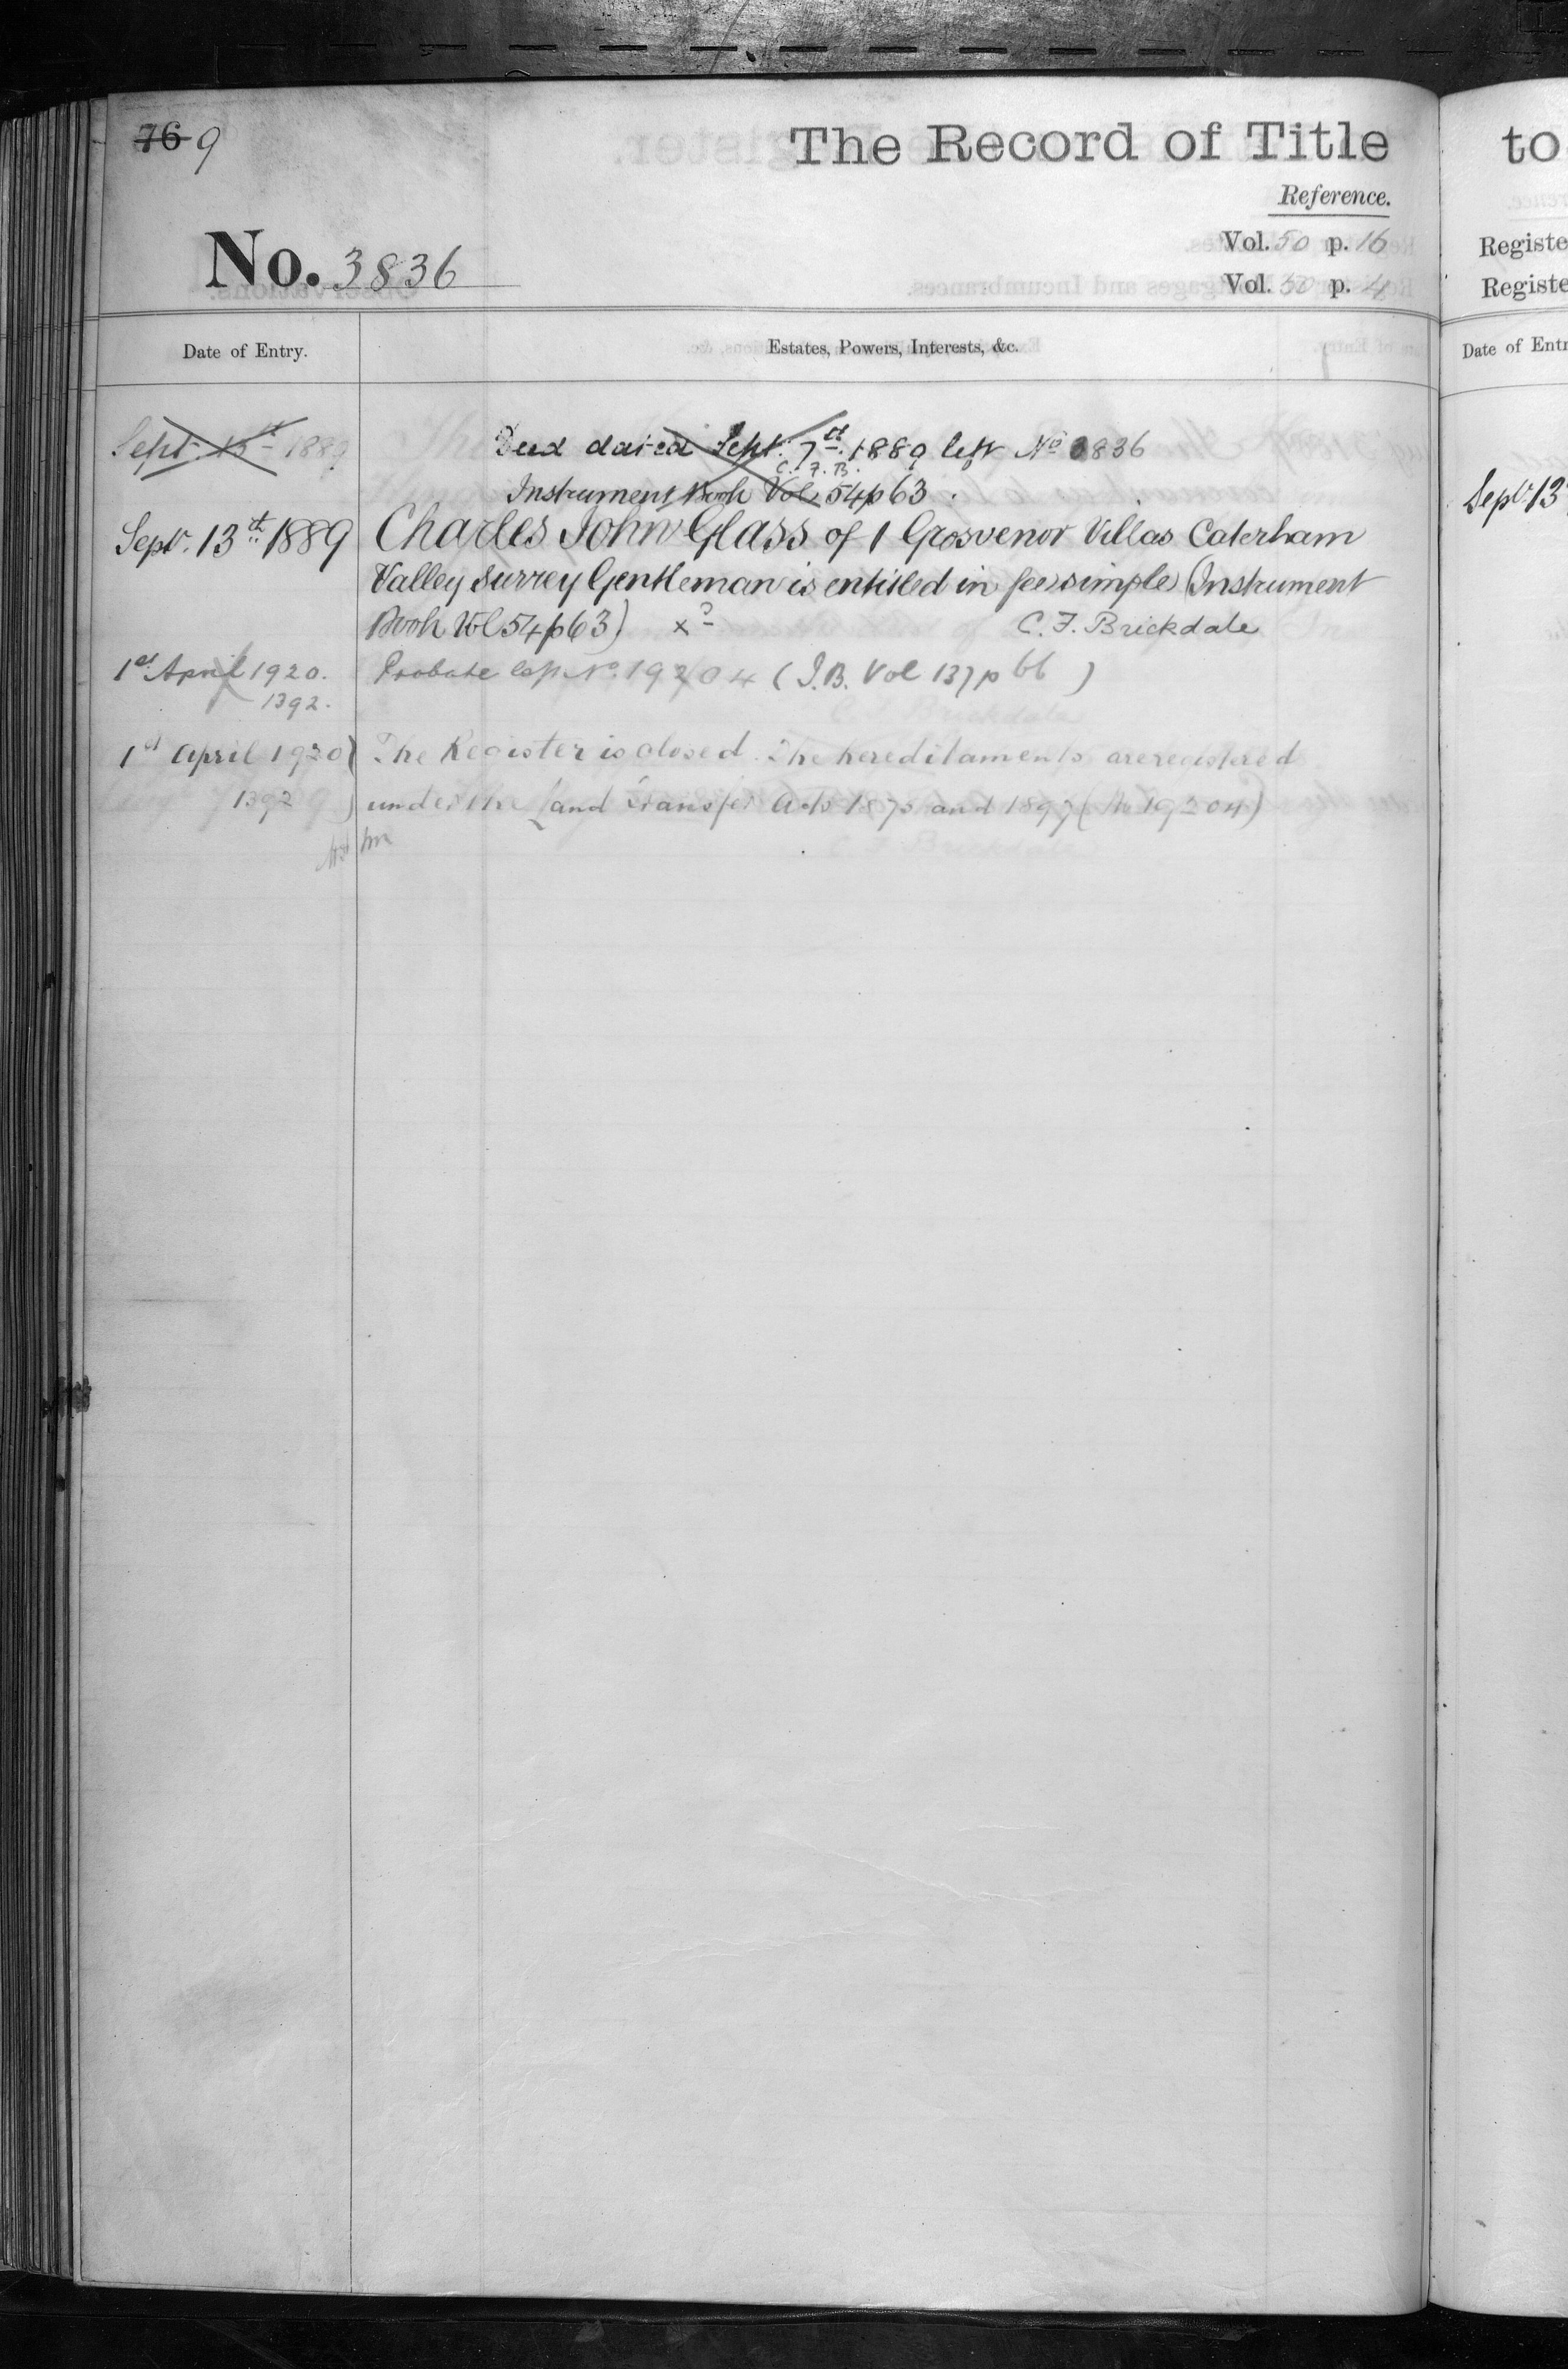 76 9
The Record of Title
Reference.
No. 3836
Vol. 50 p. 16
Vol. 50 p. 4
Date of Entry.
Estates, Powers, Interests, &c.
Sept. 13th 1889
Deed dated Sept. 7th 1889 left No 3836
C. F. B.
Instrument Book Vol 54 p 63.
Sept. 13th 1889
Charles John Glass of 1 Grosvenor Villas Caterham
Valley Surrey Gentleman is entitled in fee simple (Instrument
Book Vol 54 p 63) x
C. F. Brickdale
1st April 1920.
1392.
Probate left No. 19204 (I.B. Vol 137 p 66)
C F Brickdale
1st April 1920
1392
The Register is closed. The hereditaments are registered
under the Land Transfer Acts 1875 and 1897 (No 19204)
C F Brickdale
to
Registe
Registe
Date of Entr
Sept. 13